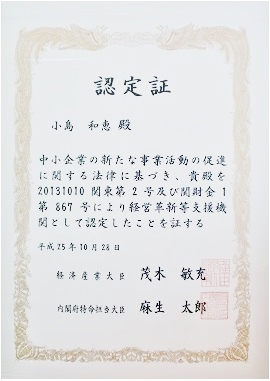 認定証
小島 和恵 殿
中小企業の新たな事業活動の促進
に関する法律に基づき、貴殿を
20131010 関東第 2 号及び関財金 1
第 867 号により経営革新等支援機
関として認定したことを証する
平成25年10月28日
経済産業大臣 茂木 敏充
内閣府特命担当大臣 麻生 太郎